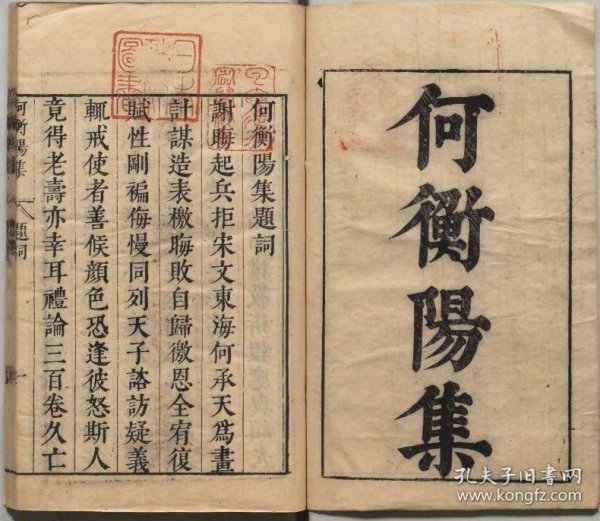 何衡陽集
何衡陽集題詞
謝晦起兵拒宋文東海何承天為畫
計謀造表檄晦敗自歸徼恩全宥復
賦性剛褊侮慢同列天子諮訪疑義
輒戒使者善候顔色恐逢彼怒斯人
竟得老壽亦幸耳禮論三百卷久亡
何衡陽集
題詞
一
孔夫子旧书网
www.kongfz.com